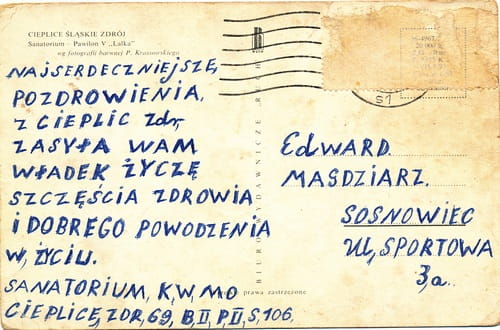 CIEPLICE ŚLĄSKIE ZDRÓJ
Sanatorium - Pawilon V „Lalka"
wg fotografii barwnej P. Krassowskiego
NAJSERDECZNIEJSZE,
POZDROWIENIA,
z CIEPLIC Zdr,
ZASYŁA WAM
WŁADEK ŻYCZĘ
SZCZĘŚCIA ZDROWIA
i DOBREGO POWODZENIA
W, ŻYCIU.
SANATORIUM, K,W,MO
CIEPLICE, ZDR, 69, B,II P,II, S, 106,
BIURO WYDAWNICZE RUCH
prawa zastrzeżone
S1
EDWARD
MAGDZIARZ.
SOSNOWIEC
Ul, SPORTOWA
3,a.